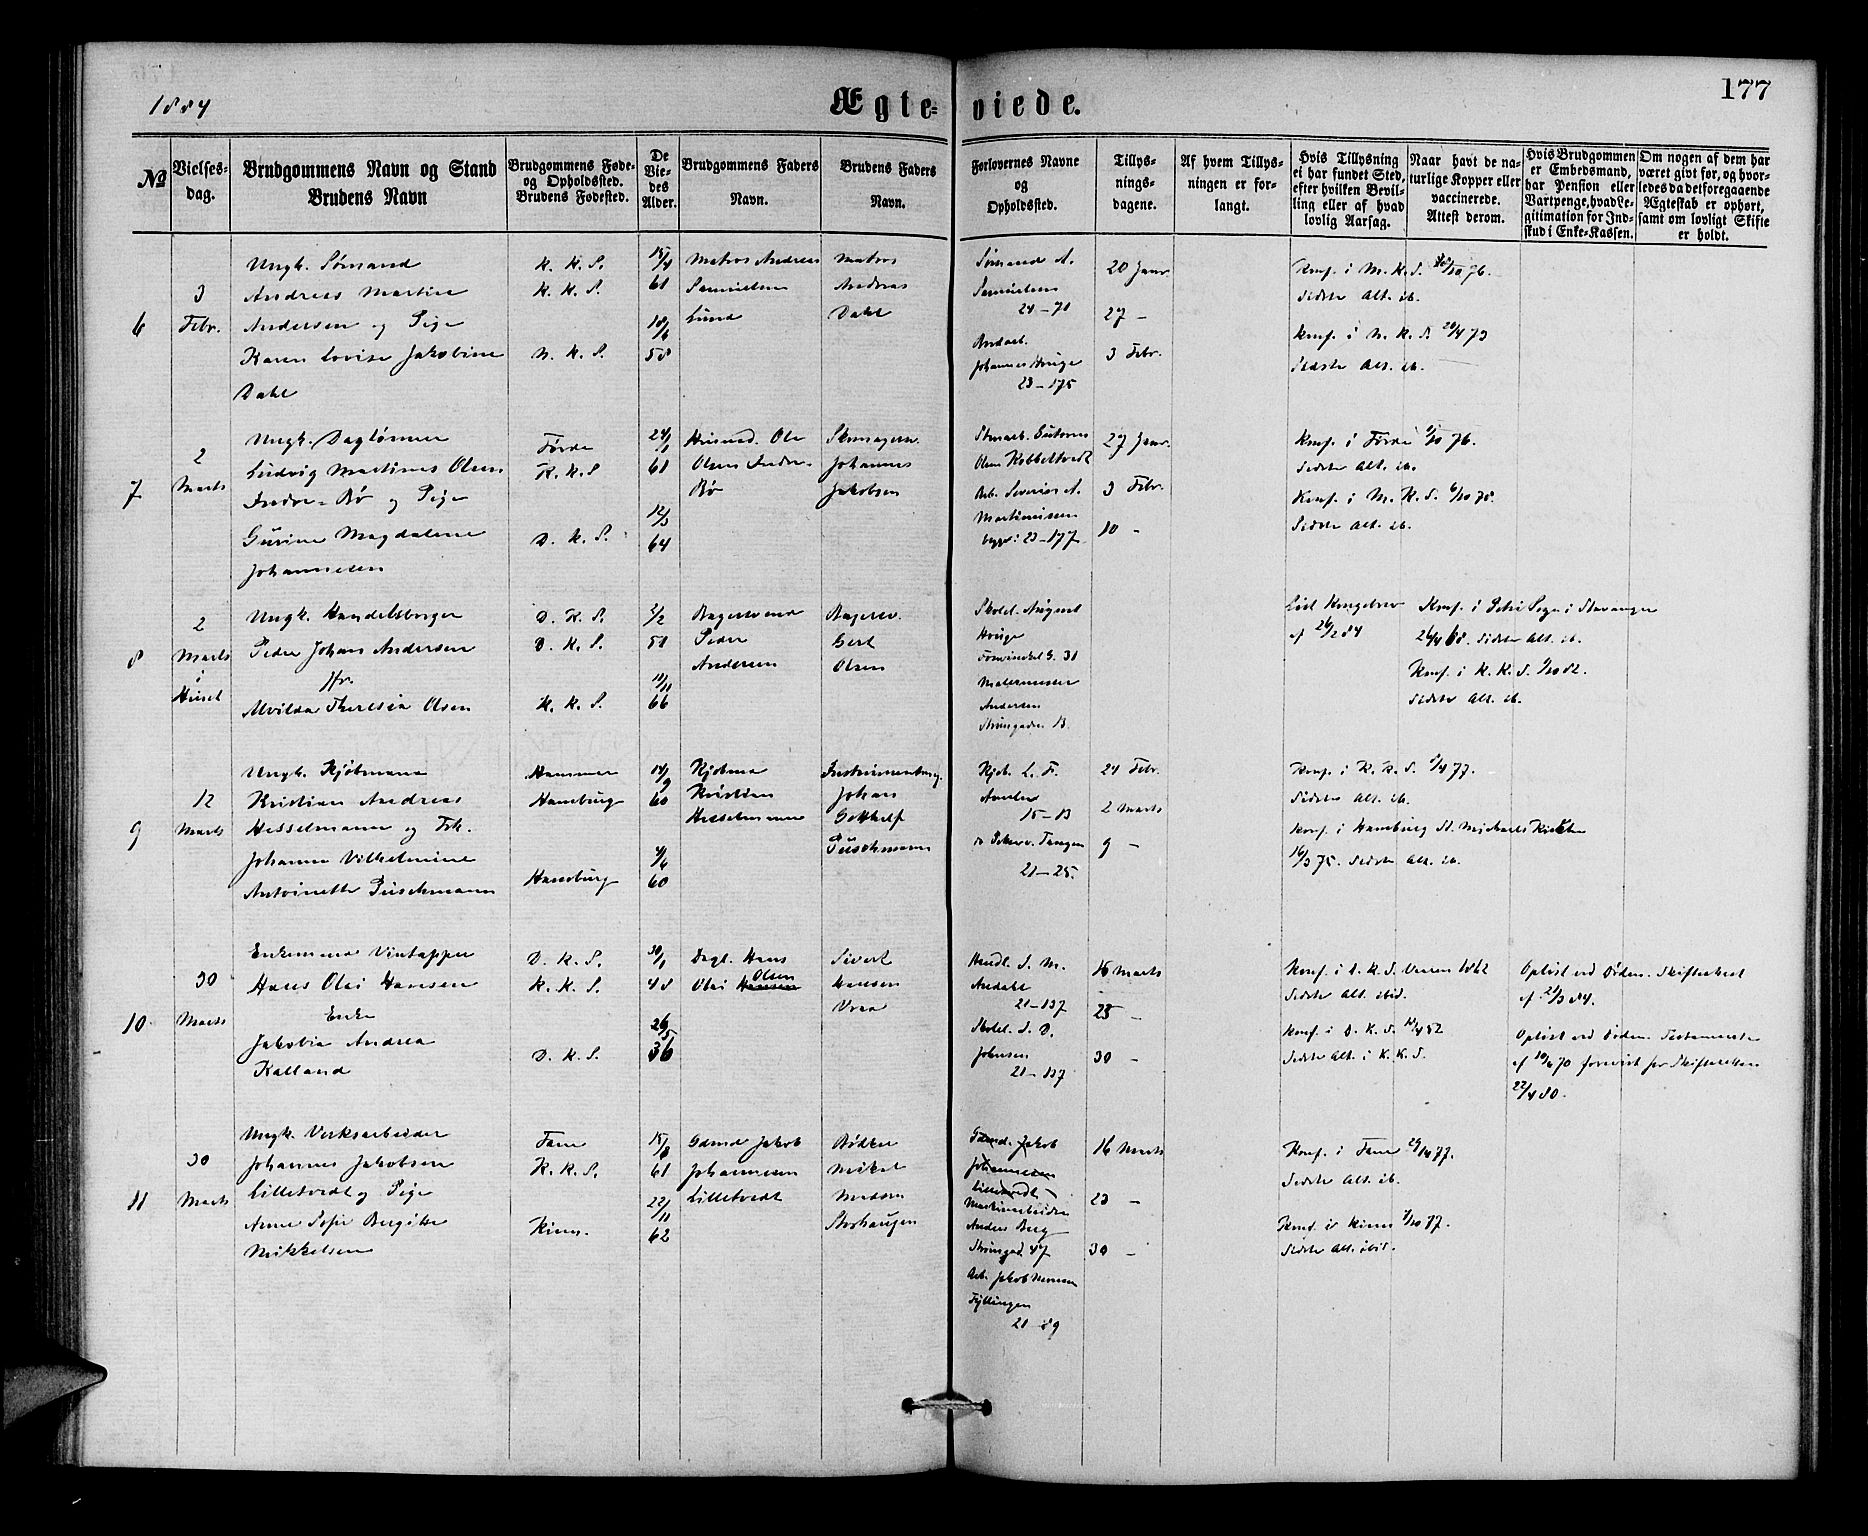 1884
Ægteviede.
177
№
Vielsesdag.
Brudgommens Navn og Stand
Brudens Navn
Brudgommens Føde-
og Opholdssted.
Brudens Fødested.
De
Vie-
des
Alder.
Brudgommens Faders
Navn.
Brudens Faders
Navn.
Forlovernes Navne
og
Opholdssted.
Tillys-
nings-
dagene.
Af hvem Tillys-
ningen er for-
langt.
Hvis Tillysning
ei har fundet Sted,
efter hvilken Bevil-
ling eller af hvad
lovlig Aarsag.
Naar havt de na-
turlige Kopper eller
vaccinerede.
Attest derom.
Hvis Brudgommen
er Embedsmand,
har Pension eller
Vartpenge, hvad Le-
gitimation for Ind-
skud i Enke-Kassen.
Om nogen af dem har
været givt før, og hvor-
ledes da det foregaaende
Ægteskab er ophørt,
samt om lovligt Skifte
er holdt.
6
3
Febr.
Ungk. Sømand
Andreas Martin
Andersen og Pige
Karen Lovise Jakobine
Dahl
K. K. S.
K. K. S.
N. K. S.
61
58
Matros Andreas
Samuelsen
Lund
Matros
Andreas
Dahl
Sømand A.
Samuelsen
24 – 70
Johannes Hauge
23 – 175
20 Janr.
27 –
3 Febr.
Konf. i M. K. S. 76.
Sidste Alt. ib.
Konf. i N. K. S. 20/4 73
Sidste Alt. ib.
7
2
Marts
Ungk. Daglønner
Ludvig Martines Olsen
Indre-Bø og Pige
Gurine Magdalene
Johannesen
Førde
K. K. S
D. K. S.
24/1
61
12/3
64
Husmd. Ole
Olsen Indre-
Bø
Skomagersv.
Johannes
Jakobsen
Olsen Kobbeltvedt
Arb. Severin A.
Martinussen
23 – 177
27 Janr.
3 Febr.
10 –
Konf. i Førde 76.
Sidste Alt. ib.
Konf. i M. K. S. 6/10 78.
Sidste Alt. ib.
8
2
Marts
i
Huset
Ungk. Handelsborger
Peder Johan Andersen
Jfr.
Alvilda Theresia Olsen
D. K. S.
D. K. S.
K. K. S.
2/2
51
66
Bagersvend
Peder
Andersen
Bagersv.
Gert
Olsen
Skolel. August
Hauge
31
Malermester
Andersen
Strømgaden 13
Lidl Kongebrev
af 26/2 84
Konf. i Petri Sogn i Stavanger
26/4 68. Sidste Alt. ib.
Konf. i K. K. S. 1/10 82.
Sidste Alt. ib.
9
12
Marts
Ungk. Kjøbmand
Kristian Andreas
Hesselmann og Frk.
Johanne Vilhelmine
Antoinette Püschmann
Hammer
Hamburg
Hamburg
14/9
60
4/6
60
Kjøbmd
Kristian
Hesselmann
Instrumentmg.
Johan
Gotthelf
Püschmann
Kjøb. L. F.
15 – 13
Tangen
21 – 25.
24 Febr.
2 Marts
9 –
Konf. i K. K. S. 77.
Sidste Alt. ib.
Konf. i Hamburg St. Michaels Kirche
16/3 75. Sidste Alt. ib.
10
30
Marts
Enkemand Vintapper
Hans Olai Hansen
Enke
Jakobia Andrea
Kalland
D. K. S.
K. K. S.
D. K. S.
30/1
48
26/5
36
Dagl. Hans
Olai Hansen Olsen
Sivert
Hansen
Vraa
Handl. S. M.
Andahl
21 – 137
Skolel. S. D.
Johnsen
21 – 137
16 Marts
23 –
30 –
Sidste Alt. ibid.
Konf. i D. K. S. 52
Sidste Alt. i K. K. S.
Opløst ved Døden. Skifteattest
af 21/3 84.
Opløst ved Døden. Testamente
af 70 forevist for Skifteretten
22/4 80.
11
30
Marts
Ungk. Verksarbeider
Johannes Jakobsen
Lilletvedt og Pige
Anne Sofie Bergitte
Mikkelsen
Fane
K. K. S.
Kinn.
61
22/11
62
Gdmd Jakob
Johannesen
Lilletvedt
Bødker
Mikal
Madsen
Storhaugen
Gdmd. Jakob
Johannesen
Lilletvedt –
Maskinarbeider
Anders Berg
Strømgad. 47
Arb. Jakob Monsen
Fyllingen
21 – 89
16 Marts
23 –
30 –
Konf. i Fane 77.
Sidste Alt. ib.
Konf. i Kinn 7/10 77.
Sidste Alt. ibid.